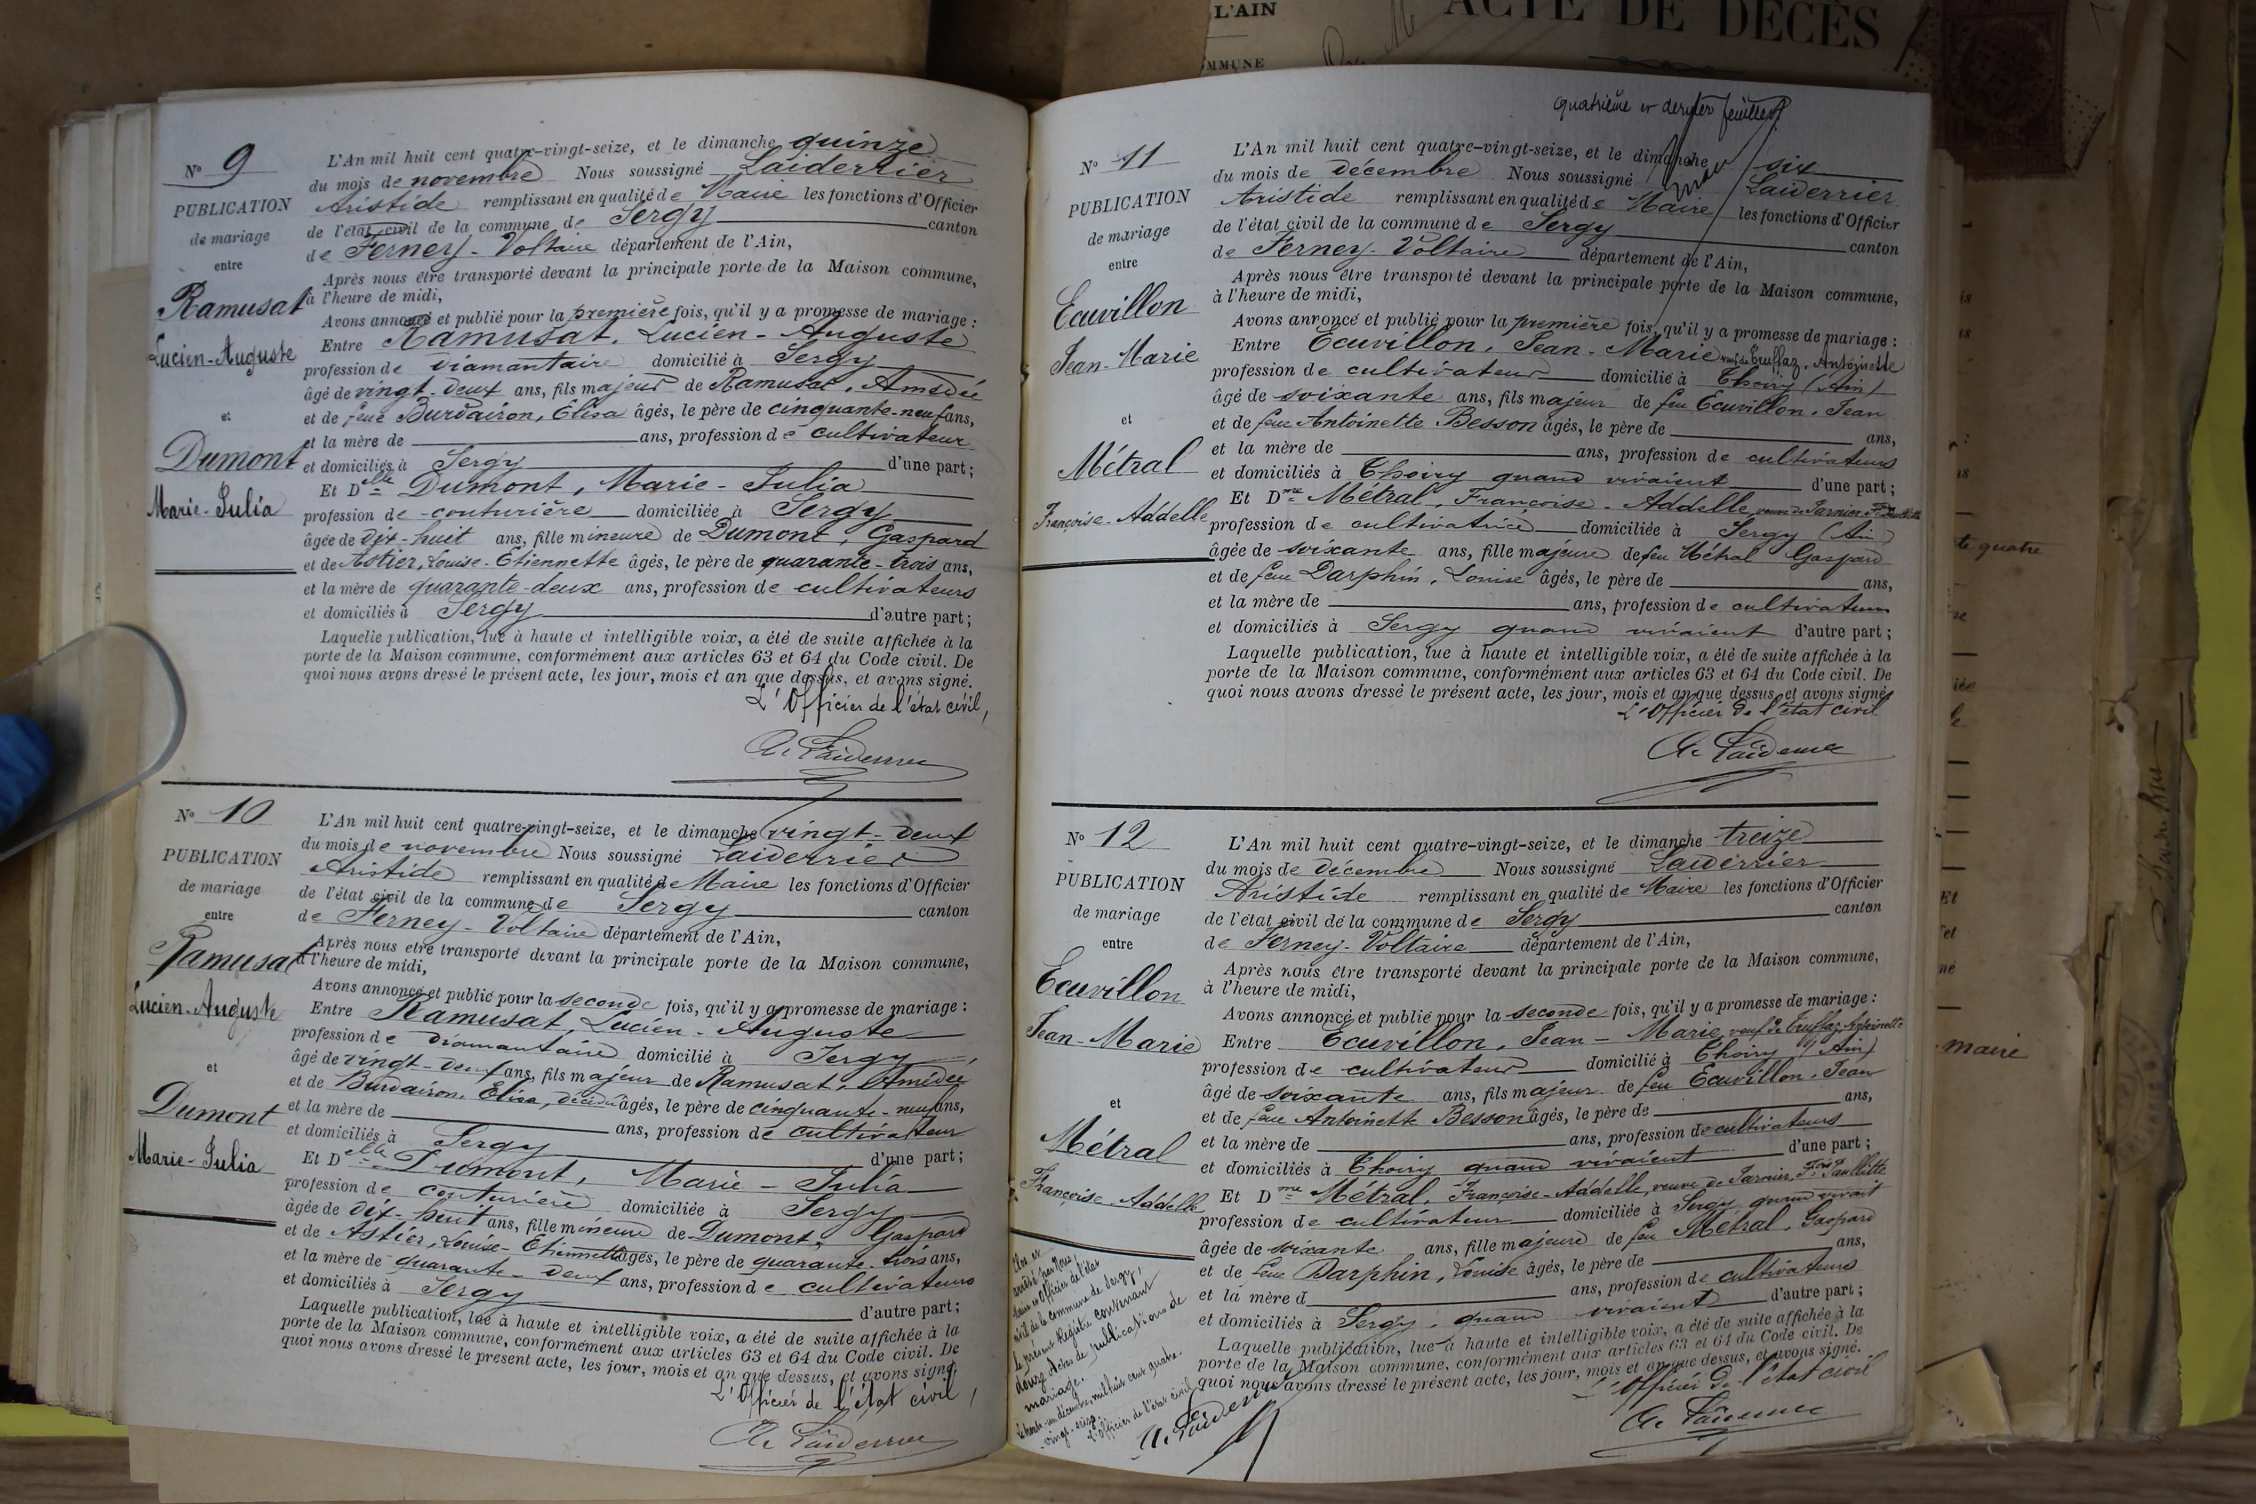 L'AIN
ACTE DE DÉCÈS
quatrième et dernier feuillet
N° 9
PUBLICATION
de mariage
entre
Ramusat
Lucien-Auguste
et
Dumont
Marie-Julia
L'An mil huit cent quatre-vingt-seize, et le dimanche quinze
du mois de novembre Nous soussigné Laiderrier
Aristide remplissant en qualité de Maire les fonctions d'Officier
de l'état civil de la commune de Sergy canton
de Ferney-Voltaire département de l'Ain,
Après nous être transporté devant la principale porte de la Maison commune,
à l'heure de midi,
Avons annoncé et publié pour la première fois, qu'il y a promesse de mariage :
Entre Ramusat, Lucien-Auguste
profession de diamantaire domicilié à Sergy
âgé de vingt-deux ans, fils majeur de Ramusat, Amédée
et de feue Burdairon, Elisa âgés, le père de cinquante-neuf ans,
et la mère de ans, profession de cultivateur
et domiciliés à Sergy d'une part ;
Et Delle Dumont, Marie-Julia
profession de couturière domiciliée à Sergy
âgée de dix-huit ans, fille mineure de Dumont, Gaspard
et de Astier, Louise-Etiennette âgés, le père de quarante-trois ans,
et la mère de quarante-deux ans, profession de cultivateurs
et domiciliés à Sergy d'autre part ;
Laquelle publication, lue à haute et intelligible voix, a été de suite affichée à la
porte de la Maison commune, conformément aux articles 63 et 64 du Code civil. De
quoi nous avons dressé le présent acte, les jour, mois et an que dessus, et avons signé.
L'Officier de l'état civil,
A. Laiderrier
N° 10
PUBLICATION
de mariage
entre
Ramusat
Lucien-Auguste
et
Dumont
Marie-Julia
L'An mil huit cent quatre-vingt-seize, et le dimanche vingt-deux
du mois de novembre Nous soussigné Laiderrier
Aristide remplissant en qualité de Maire les fonctions d'Officier
de l'état civil de la commune de Sergy canton
de Ferney-Voltaire département de l'Ain,
Après nous être transporté devant la principale porte de la Maison commune,
à l'heure de midi,
Avons annoncé et publié pour la seconde fois, qu'il y a promesse de mariage :
Entre Ramusat, Lucien-Auguste
profession de diamantaire domicilié à Sergy
âgé de vingt-deux ans, fils majeur de Ramusat, Amédée
et de Burdairon, Elisa, décédée âgés, le père de cinquante-neuf ans,
et la mère de ans, profession de cultivateur
et domiciliés à Sergy d'une part ;
Et Delle Dumont, Marie-Julia
profession de couturière domiciliée à Sergy
âgée de dix-huit ans, fille mineure de Dumont, Gaspard
et de Astier, Louise-Etiennette âgés, le père de quarante-trois ans,
et la mère de quarante-deux ans, profession de cultivateurs
et domiciliés à Sergy d'autre part ;
Laquelle publication, lue à haute et intelligible voix, a été de suite affichée à la
porte de la Maison commune, conformément aux articles 63 et 64 du Code civil. De
quoi nous avons dressé le présent acte, les jour, mois et an que dessus, et avons signé.
L'Officier de l'état civil,
A. Laiderrier
N° 11
PUBLICATION
de mariage
entre
Ecuvillon
Jean-Marie
et
Métral
Françoise-Addelle
L'An mil huit cent quatre-vingt-seize, et le dimanche six
du mois de décembre Nous soussigné Laiderrier
Aristide remplissant en qualité de Maire les fonctions d'Officier
de l'état civil de la commune de Sergy canton
de Ferney-Voltaire département de l'Ain,
Après nous être transporté devant la principale porte de la Maison commune,
à l'heure de midi,
Avons annoncé et publié pour la première fois, qu'il y a promesse de mariage :
Entre Ecuvillon, Jean-Marie veuf de Truffaz, Antoinette
profession de cultivateur domicilié à Thoiry (Ain)
âgé de soixante ans, fils majeur de feu Ecuvillon, Jean
et de feue Antoinette Besson âgés, le père de ans,
et la mère de ans, profession de cultivateurs
et domiciliés à Thoiry quand vivaient d'une part ;
Et Dme Métral, Françoise-Addelle, veuve de Jarnier
profession de cultivatrice domiciliée à Sergy (Ain)
âgée de soixante ans, fille majeure de feu Métral Gaspard
et de feue Darphin, Louise âgés, le père de ans,
et la mère de ans, profession de cultivateurs
et domiciliés à Sergy quand vivaient d'autre part ;
Laquelle publication, lue à haute et intelligible voix, a été de suite affichée à la
porte de la Maison commune, conformément aux articles 63 et 64 du Code civil. De
quoi nous avons dressé le présent acte, les jour, mois et an que dessus, et avons signé.
L'Officier de l'état civil
A. Laiderrier
N° 12
PUBLICATION
de mariage
entre
Ecuvillon
Jean-Marie
et
Métral
Françoise-Addelle
L'An mil huit cent quatre-vingt-seize, et le dimanche treize
du mois de décembre Nous soussigné Laiderrier
Aristide remplissant en qualité de Maire les fonctions d'Officier
de l'état civil de la commune de Sergy canton
de Ferney-Voltaire département de l'Ain,
Après nous être transporté devant la principale porte de la Maison commune,
à l'heure de midi,
Avons annoncé et publié pour la seconde fois, qu'il y a promesse de mariage :
Entre Ecuvillon, Jean-Marie, veuf de Truffaz, Antoinette
profession de cultivateur domicilié à Thoiry (Ain)
âgé de soixante ans, fils majeur de feu Ecuvillon, Jean
et de feue Antoinette Besson âgés, le père de ans,
et la mère de ans, profession de cultivateurs
et domiciliés à Thoiry quand vivaient d'une part ;
Et Dme Métral, Françoise-Addelle, veuve de Jarnier
profession de cultivateur domiciliée à Sergy quand vivait
âgée de soixante ans, fille majeure de feu Métral, Gaspard
et de feue Darphin, Louise âgés, le père de ans,
et la mère d ans, profession de cultivateurs
et domiciliés à Sergy, quand vivaient d'autre part ;
Laquelle publication, lue à haute et intelligible voix, a été de suite affichée à la
porte de la Maison commune, conformément aux articles 63 et 64 du Code civil. De
quoi nous avons dressé le présent acte, les jour, mois et an que dessus, et avons signé.
L'Officier de l'état civil
A. Laiderrier
Clos et
arrêté par Nous,
Maire et Officier de l'état
civil de la commune de Sergy,
le présent Registre contenant
douze Actes de publications de
mariage.
le trente-un décembre mil huit cent quatre-
vingt-seize.
L'Officier de l'état civil
A. Laiderrier